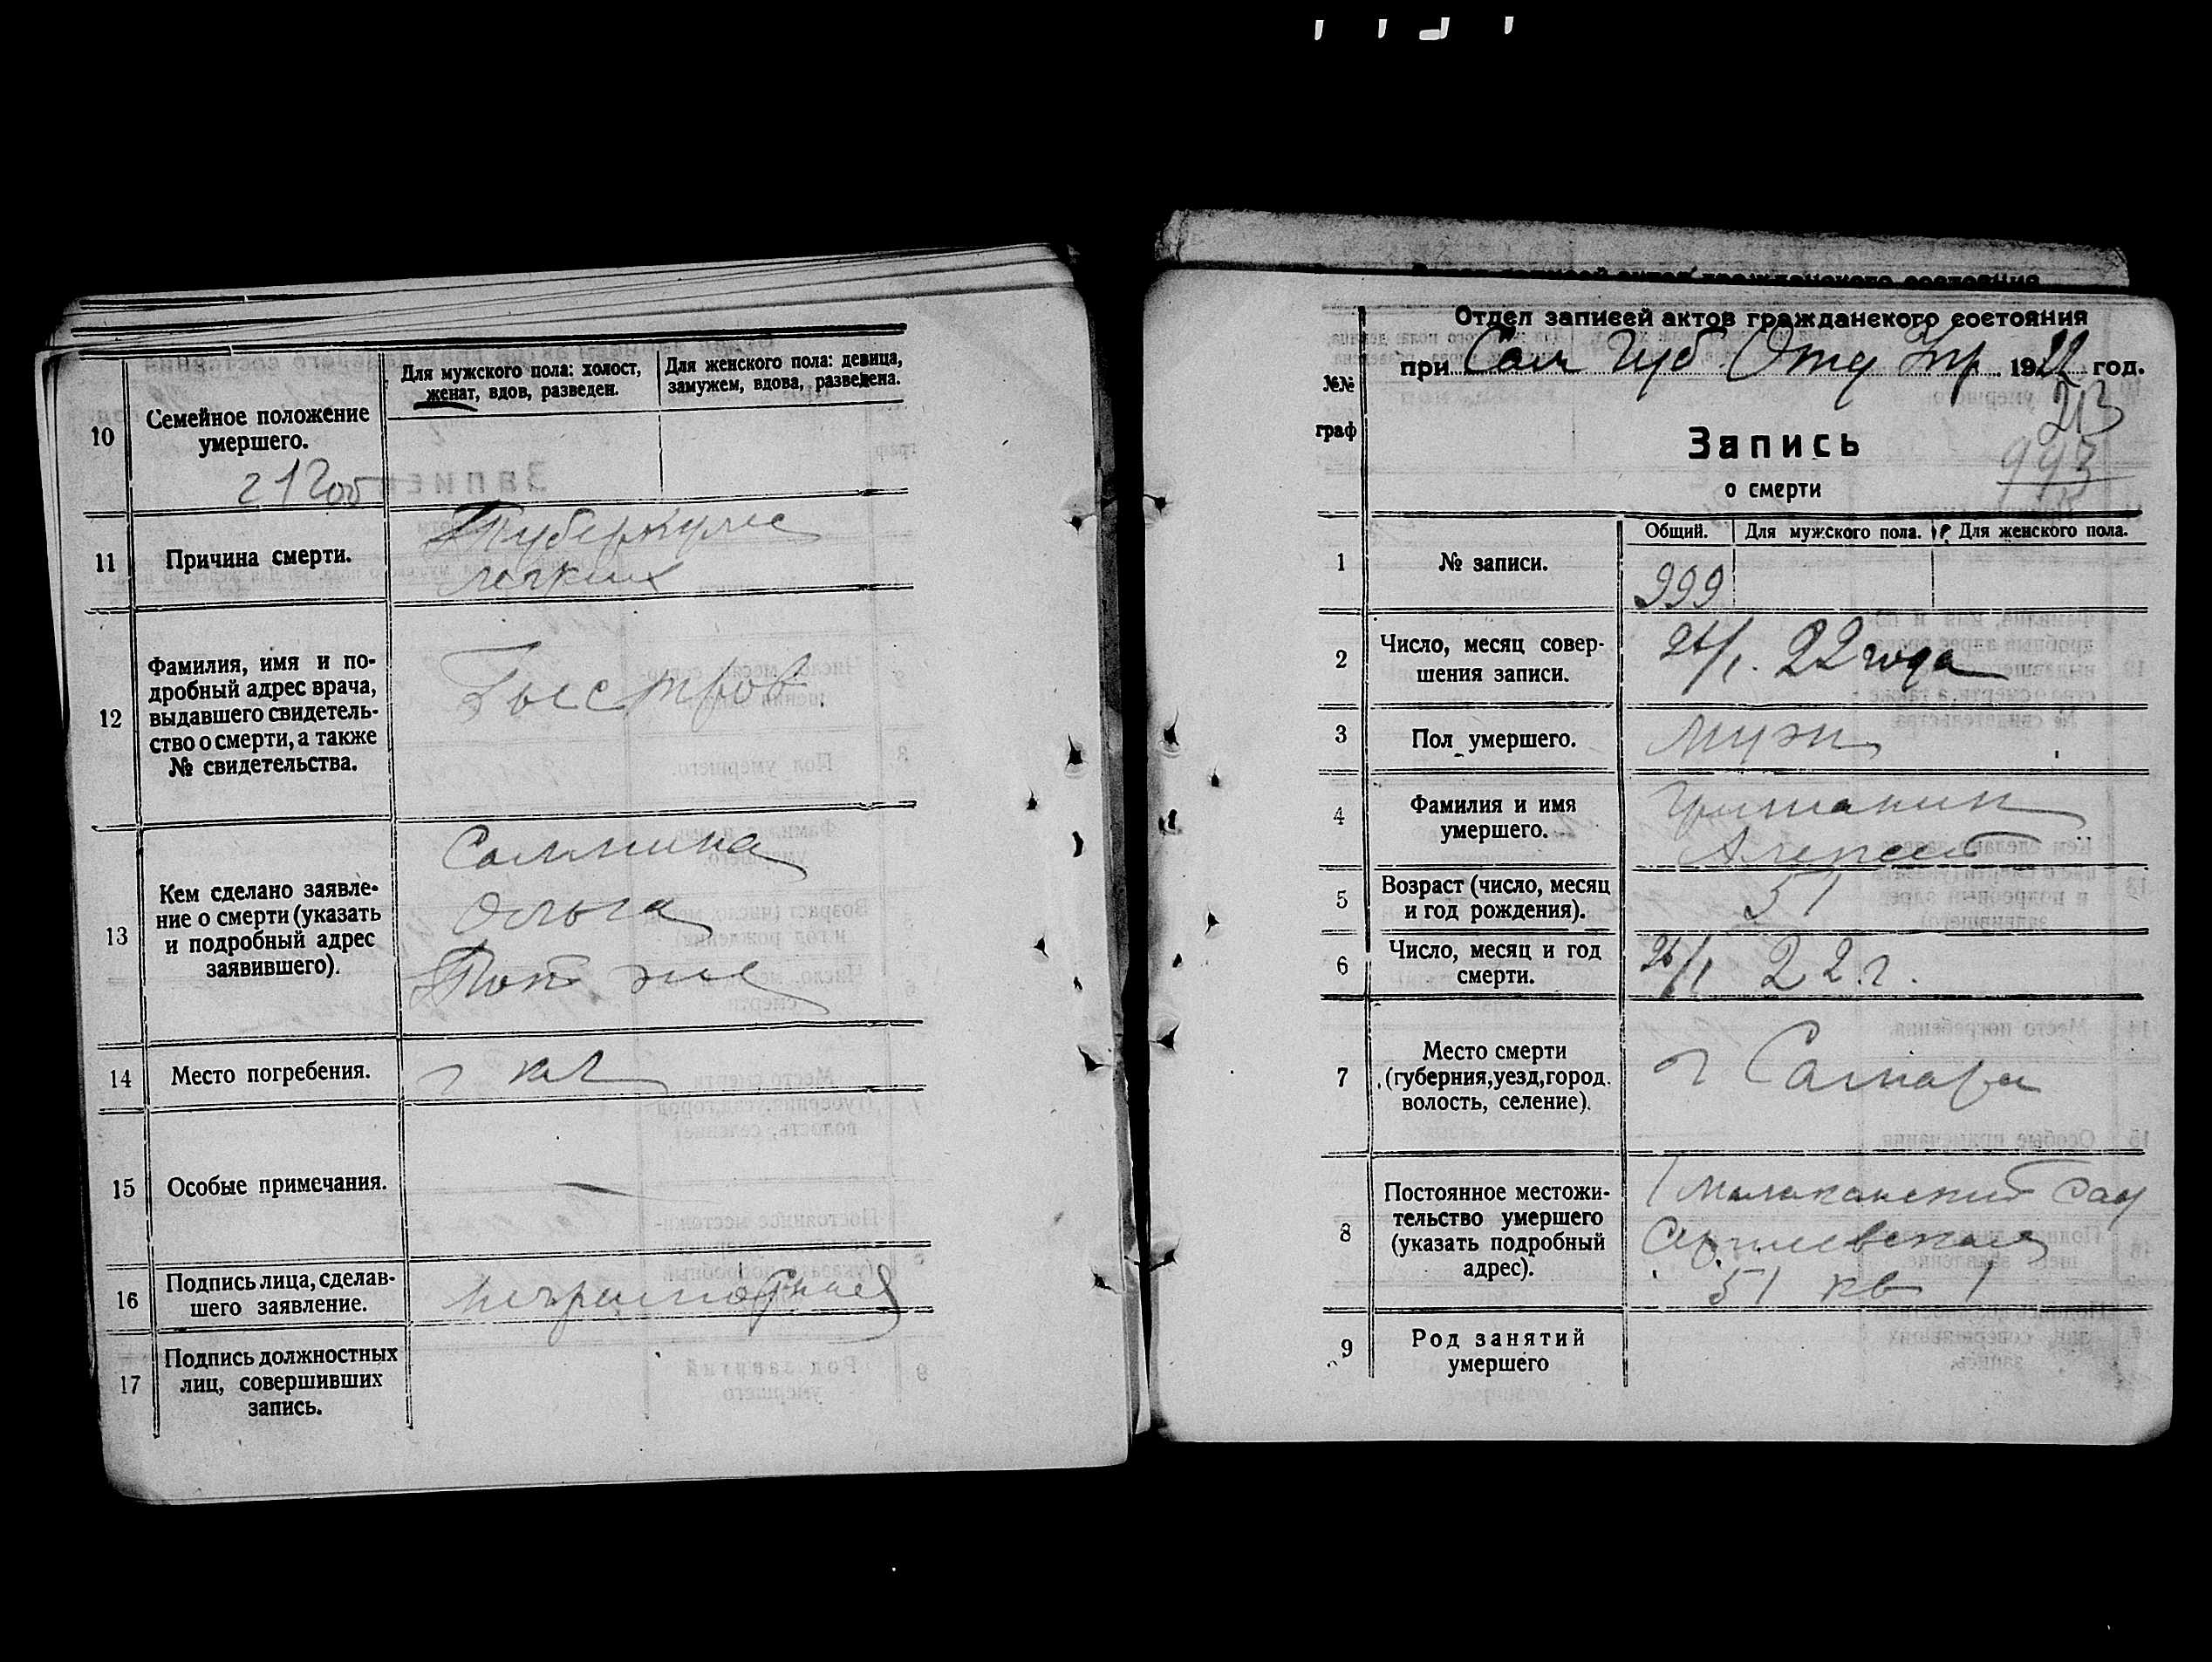 10
Семейное положение
умершего.
Для мужского пола: холост,
женат, вдов, разведен.
Для женского пола: девица,
замужем, вдова, разведена.
11
Причина смерти.
Туберкулес
легких
12
Фамилия, имя и по-
дробный адрес врача,
выдавшего свидетель-
ство о смерти, а также
№ свидетельства.
Быстров
13
Кем сделано заявле-
ние о смерти (указать
и подробный адрес
заявившего).
Ольга
14
Место погребения.
г кл
15
Особые примечания.
16
Подпись лица, сделав-
шего заявление.
неграмотная
17
Подпись должностных
лиц, совершивших
запись.
Отдел записей актов гражданского состояния
при Сам Губ Отд Упр 1922 год.
№№
граф
213
993
Запись
о смерти
1
№ записи.
Общий.
Для мужского пола.
Для женского пола.
999
2
Число, месяц совер-
шения записи.
22 года
3
Пол умершего.
муж
4
Фамилия и имя
умершего.
Алексей
5
Возраст (число, месяц
и год рождения).
51
6
Число, месяц и год
смерти.
26/I 22 г.
7
Место смерти
(губерния, уезд, город.
волость, селение).
г Самара
8
Постоянное местожи-
тельство умершего
(указать подробный
адрес).
Молоканский сад
Сергиевская
51 кв 1
9
Род занятий
умершего